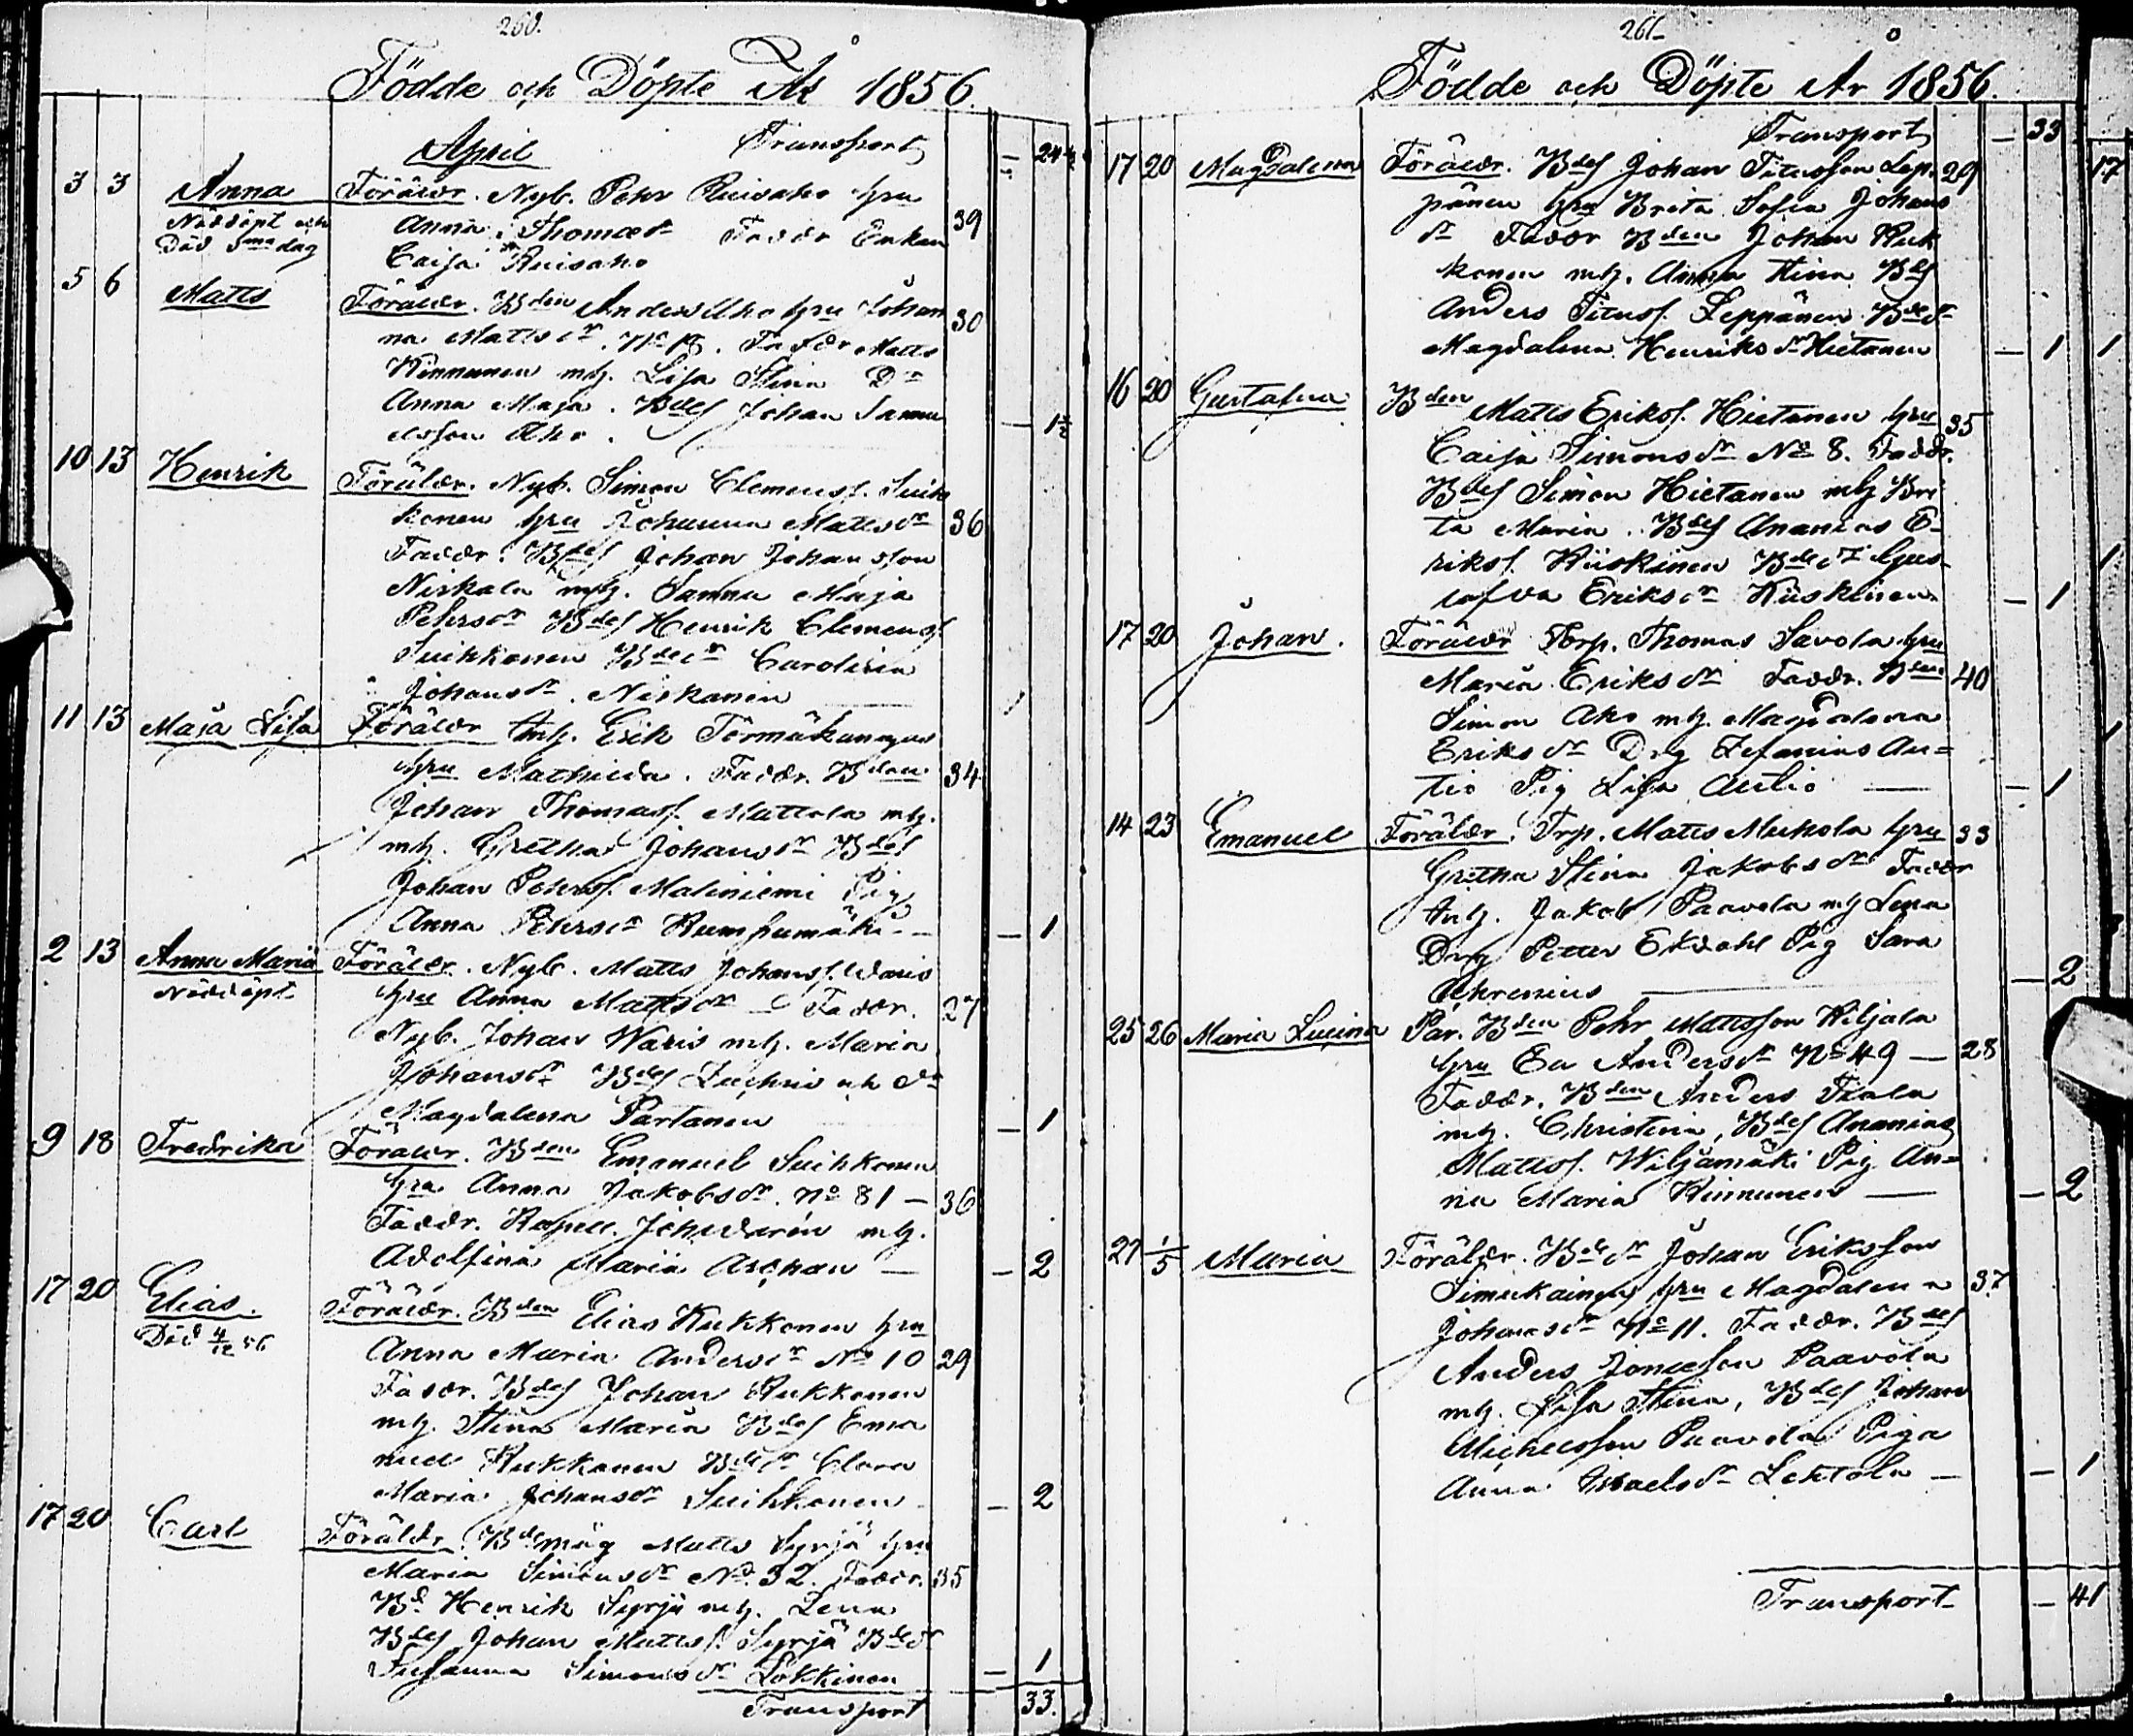 260.
Födde och Döpte År 1856.
April Transport — 24 ½
3 3 Anna Föräldr. Nyb. Pehr Ruisaho hru
Nöddöpt och Anna Thomæ dr Faddr Enkan 39
Död s. dag Caisa Ruisaho
5 6 Matts Föräldr. Bden Anders Aho hru Johan 30
na Matts dr. Faddr Matts
Kinnunen mh. Lisa Stina Dr
Anna Maja. Bdes Johan Samu
elsson Aho. — 1 ½
10 13 Henrik Föräldr. Nyb. Simon Clemens. Suik
konen hru Johanna Matts dr 36
Faddr. Bdes Johan Johansson
Niskala mh. Sanna Maja
Pehrs dr Bdes Henrik Clemens.
Suikkonen Bde dr Carolina
Johans dr. Niskanen
11 13 Maja Lisa Föräldr Inh. Erik Törmäkangas
hru Mathilda. Faddr. Bden 34
Johan Thomass. Mattola mh.
mh. Gretha Johans dr Bdes
Johan Pehrss. Maliniemi Pig
Anna Pehrs dr Rumpumäki — 1
2 13 Anna Maria Föräldr. Nyb. Matts Johanss. Waris
Nöddöpt hru Anna Matts dr — Faddr. 27
Nyb. Johan Waris mh. Maria
Johans dr Bdes Zachris och dr
Magdalena Partanen — 1
9 18 Fredrika Föräldr. Bden Emanuel Suikkonen
hru Anna Jakobs dr. No 81 — 36
Faddr. Kapell. mh.
Adolfina Maria Aschan — — 2
17 20 Elias. Föräldr. Bden Elias Kukkonen hru
Död 4/12 56 Anna Maria Anders dr No 10 29
Faddr. Bdes Johan Kukkonen
mh. Stina Maria Bdes Ema
nuel Kukkonen Bde dr Clara
Maria Johans dr Suikkonen — 2
17 20 Carl Föräldr. Bdemåg Matts Syrjä hru
Maria Simons dr No. 32. Faddr. 35
Bd. Henrik Syrjä mh. Lena
Bdes Johan Matts. Syrjä Bde dr
Susanna Simons dr Lokkinen — 1
Transport 33.
261
Födde och Döpte År 1856.
Transport — 33
17 20 Magdalena Föräldr. Bdes Johan Titusson Lep- 29
pänen hru Brita Sofia Johans
dr Faddr Bden Johan Kuk
konen mh. Anna Stina Bds
Anders Tituss. Leppänen Bde dr
Magdalena Henriks dr Hietanen — 1
16 20 Gustafva Bden Matts Eriks. Hietanen hru 35
Caisa Simons dr No 8. Faddr.
Bdes Simon Hietanen mh Bri
ta Maria. Bdes Ananias E-
riks. Kiiskinen Bde dr Gus-
tafva Eriks dr Kiiskinen — 1
17 20 Johan. Föräldr Torp. Thomas Savola hru
Maria Eriks dr Faddr. Bden 40
Simon Aho mh. Magdalena
Eriks dr Drg Zefanias Au=
tio Pig Lisa Autio — — 1
14 23 Emanuel Föräldr. Trp. Matts Mukola hru 33
Gretha Stina Jakobs dr Faddr
Inh. Jakob Paavola mh Lena
Drg Petter Ekdahl Pig Sara
Chrenius — — 2
25 26 Maria Lucina Par. Bden Pehr Mattsson Kiljala
hru Eva Anders dr No 49 — 28
Faddr. Bden Anders Tiala
mh. Christina, Bdes Ananias
Mattss. Wiljamäki Pig An=
na Maria Kinnunen — — 2
27 1/5 Maria Föräldr. Bde dr Johan Eriksson
Simukainen hru Magdalena 37
Johans dr No 11. Faddr. Bdes
Anders Jonasson Paavola
mh. Lisa Stina, Bdes Johan
Michelsson Paavola Piga
Anna Israels dr Lehtola — — 1
Transport — 41